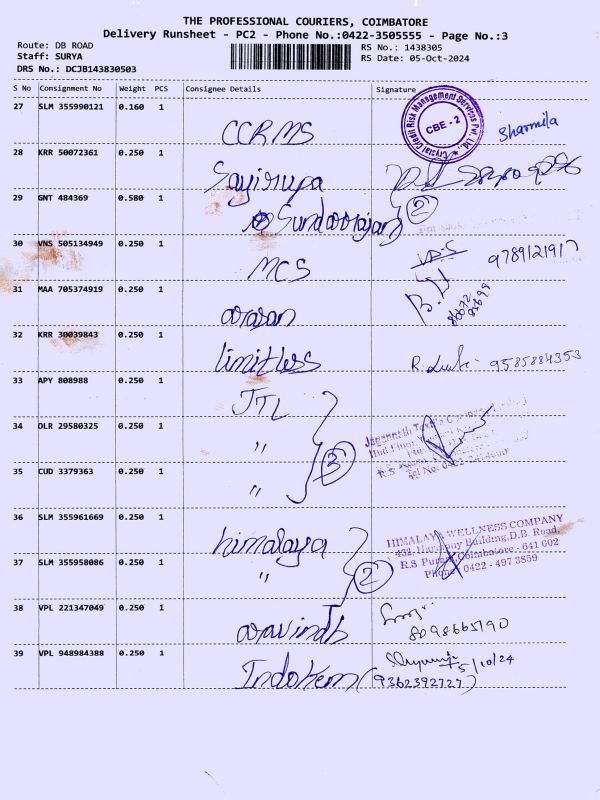 THE PROFESSIONAL COURIERS, COIMBATORE
Delivery Runsheet - PC2 - Phone No.:0422-3505555 - Page No.:3
Route: DB ROAD
Staff: SURYA
DRS No.: DCJB143830503
RS No.: 1438305
RS Date: 05-Oct-2024
S No Consignment No Weight PCS Consignee Details Signature
27 SLM 355990121 0.160 1
CCRMS
Crystal Credit Risk Management Services Pvt. Ltd.,
CBE - 2
Sharmila
28 KRR 50072361 0.250 1
Sayirupa
29 GNT 484369 0.580 1
Sundarrajan
2
30 VNS 505134949 0.250 1
MCS
9789121917
31 MAA 705374919 0.250 1
arasan
32 KRR 30039843 0.250 1
limitless
R. 9585884353
33 APY 808988 0.250 1
JTL
34 OLR 29580325 0.250 1
"
3
35 CUD 3379363 0.250 1
"
36 SLM 355961669 0.250 1
himalaya
HIMALAYA WELLNESS COMPANY
432, Building, D.B. Road,
R.S Puram, Coimbatore - 641 002
Phone: 0422 - 497 3859
37 SLM 355958086 0.250 1
"
2
38 VPL 221347049 0.250 1
aravindh
8098665190
39 VPL 948984388 0.250 1
Indokem
5/10/24
(9362392727)